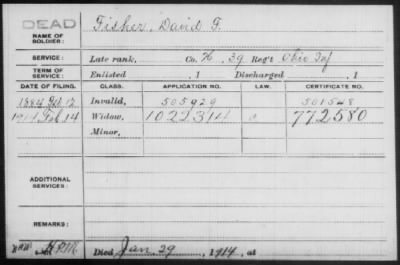 DEAD
NAME OF SOLDIER: Fisher, David F.
SERVICE: Late rank, Co. H, 39 Reg't Ohio Inf
TERM OF SERVICE: Enlisted , 1 Discharged , 1
DATE OF FILING. CLASS. APPLICATION NO. LAW. CERTIFICATE NO.
1884 Feb 12 Invalid, 505929 501548
1914 Feb 14 Widow, 1022314 a 772580
Minor,
ADDITIONAL SERVICES:
REMARKS:
Died Jan 29, 1914, at